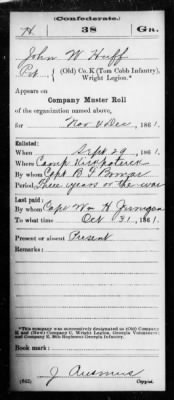 (Confederate.)
H. 38 Ga.
John W Huff
Pvt., (Old) Co. K (Tom Cobb Infantry),
Wright Legion.*
Appears on
Company Muster Roll
of the organization named above,
for Nov & Dec, 1861.
Enlisted:
When Sept 29, 1861.
Where Camp Kirkpatrick
By whom Capt B F Bomar
Period Three years or the war
Last paid:
By whom Capt Wm H Jernigan
To what time Oct 31, 1861.
Present or absent Present
Remarks:
*This company was successively designated as (Old) Company
K and (New) Company C, Wright Legion, Georgia Volunteers,
and Company K, 38th Regiment Georgia Infantry.
Book mark:
(642) J Ausmus
Copyist.